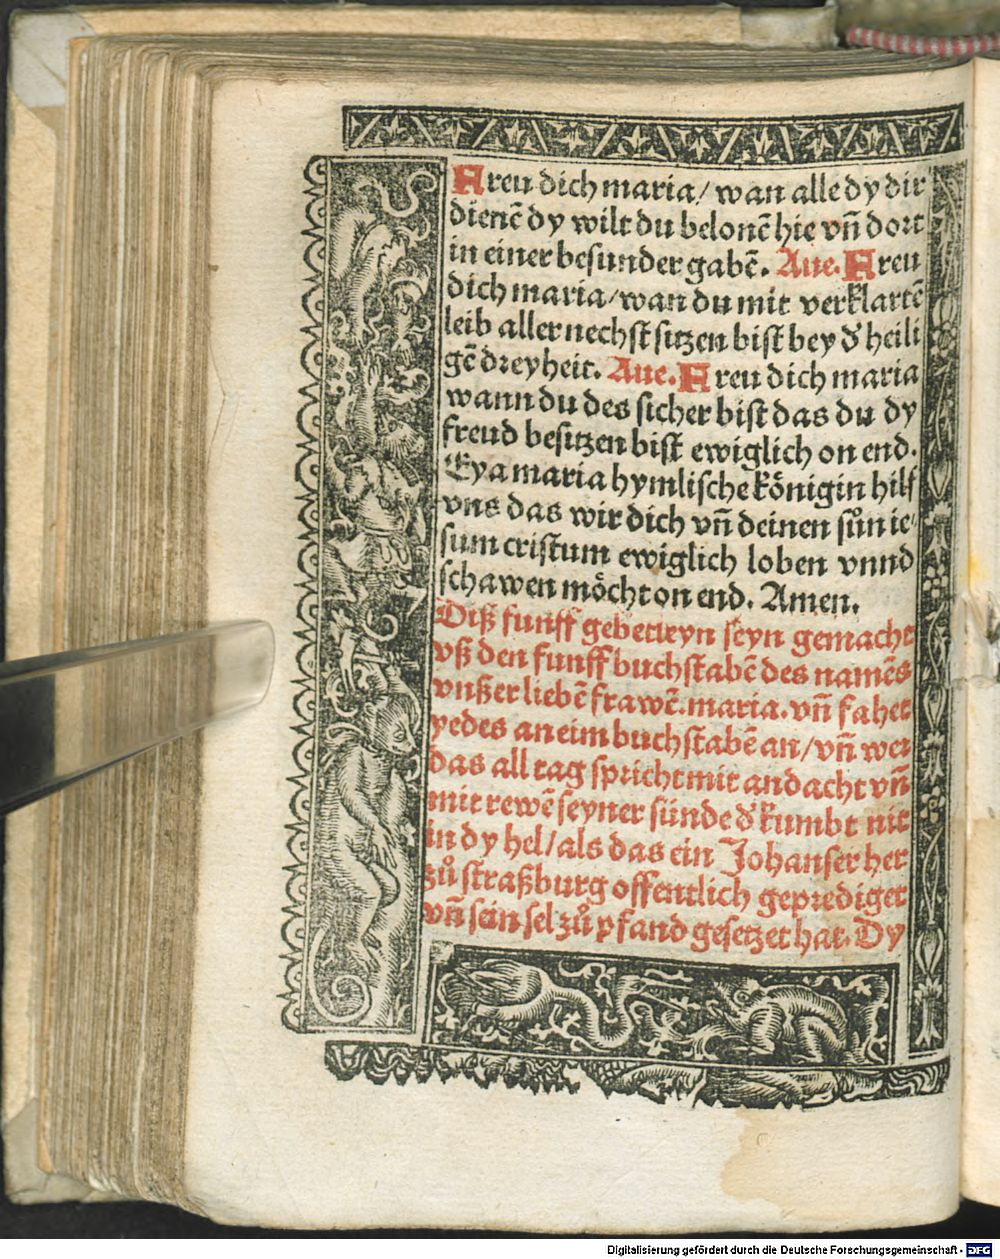 Freu dich maria/ wan alle dy dir
dienē dy wilt du belonē hie vn̄ dort
in einer besunder gabē. Aue. Freu
dich maria/wan du mit verklartē
leib aller nechst sitzen bist bey d' heili
gē dreyheit. Aue. Freu dich maria
wann du des sicher bist das du dy
freud besitzen bist ewiglich on end.
Eya maria hymlische königin hilf
vns das wir dich vn̄ deinen sůn ie/
sum cristum ewiglich loben vnnd
schawen möcht on end. Amen.
Diß funff gebetleyn seyn gemacht
vß den funff buchstabē des namēs
vnßer liebē frawē. maria. vn̄ fahet
yedes an eim buchstabē an/vn̄ wer
das all tag spricht mit andacht vn̄
mit rewē seyner sünde d' kumbt nit
in dy hel/als das ein Johanser her
zů straßburg offentlich geprediget
vn̄ sein sel zů pfand gesetzet hat. Dy
Digitalisierung gefördert durch die Deutsche Forschungsgemeinschaft - DFG